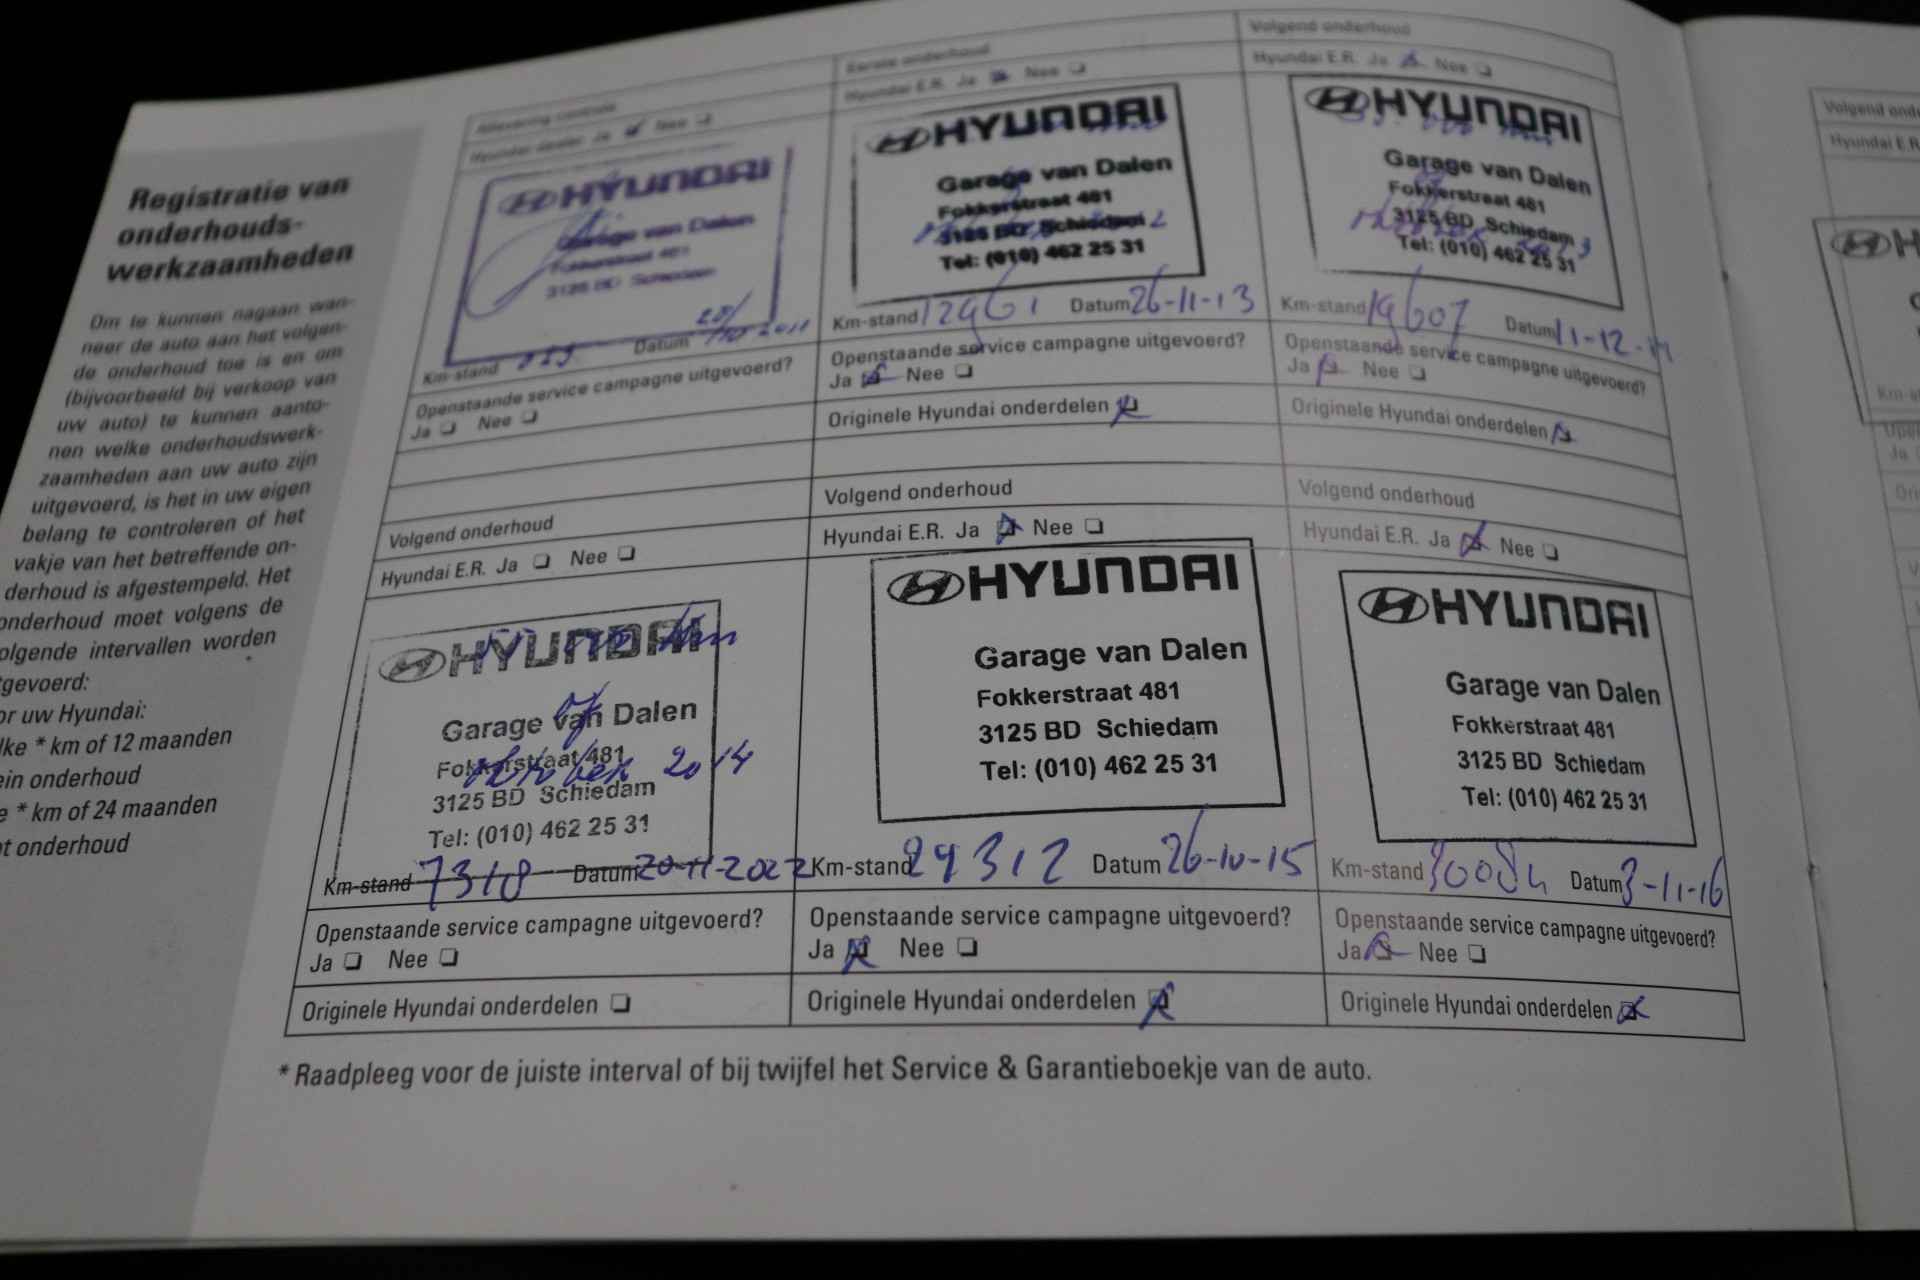 Registratie van
onderhouds-
werkzaamheden
Om te kunnen nagaan wan-
neer de auto aan het volgen-
de onderhoud toe is en om
(bijvoorbeeld bij verkoop van
uw auto) te kunnen aanto-
nen welke onderhoudswerk-
zaamheden aan uw auto zijn
uitgevoerd, is het in uw eigen
belang te controleren of het
vakje van het betreffende on-
derhoud is afgestempeld. Het
onderhoud moet volgens de
olgende intervallen worden
gevoerd:
or uw Hyundai:
lke * km of 12 maanden
ein onderhoud
e * km of 24 maanden
ot onderhoud
Aflevering controle
Hyundai dealer Ja Nee
HYUNDAI
Garage van Dalen
Fokkerstraat 481
3125 BD Schiedam
Km-stand Datum 2011
Openstaande service campagne uitgevoerd?
Ja Nee
Eerste onderhoud
Hyundai E.R. Ja Nee
HYUNDAI
Garage van Dalen
Fokkerstraat 481
3125 BD Schiedam
Tel: (010) 462 25 31
Km-stand 12961 Datum 26-11-13
Openstaande service campagne uitgevoerd?
Ja Nee
Originele Hyundai onderdelen
Volgend onderhoud
Hyundai E.R. Ja Nee
HYUNDAI
Garage van Dalen
Fokkerstraat 481
3125 BD Schiedam
Tel: (010) 462 25 31
Km-stand 19607 Datum 11-12-14
Openstaande service campagne uitgevoerd?
Ja Nee
Originele Hyundai onderdelen
Volgend onderhoud
Hyundai E.R. Ja Nee
HYUNDAI
Garage van Dalen
Fokkerstraat 481
oktober 2014
3125 BD Schiedam
Tel: (010) 462 25 31
Km-stand 7318 Datum 20-11-2012
Openstaande service campagne uitgevoerd?
Ja Nee
Originele Hyundai onderdelen
Volgend onderhoud
Hyundai E.R. Ja Nee
HYUNDAI
Garage van Dalen
Fokkerstraat 481
3125 BD Schiedam
Tel: (010) 462 25 31
Km-stand 24312 Datum 26-10-15
Openstaande service campagne uitgevoerd?
Ja Nee
Originele Hyundai onderdelen
Volgend onderhoud
Hyundai E.R. Ja Nee
HYUNDAI
Garage van Dalen
Fokkerstraat 481
3125 BD Schiedam
Tel: (010) 462 25 31
Km-stand 30084 Datum 3-11-16
Openstaande service campagne uitgevoerd?
Ja Nee
Originele Hyundai onderdelen
* Raadpleeg voor de juiste interval of bij twijfel het Service & Garantieboekje van de auto.
Volgend onde
Hyundai E.R